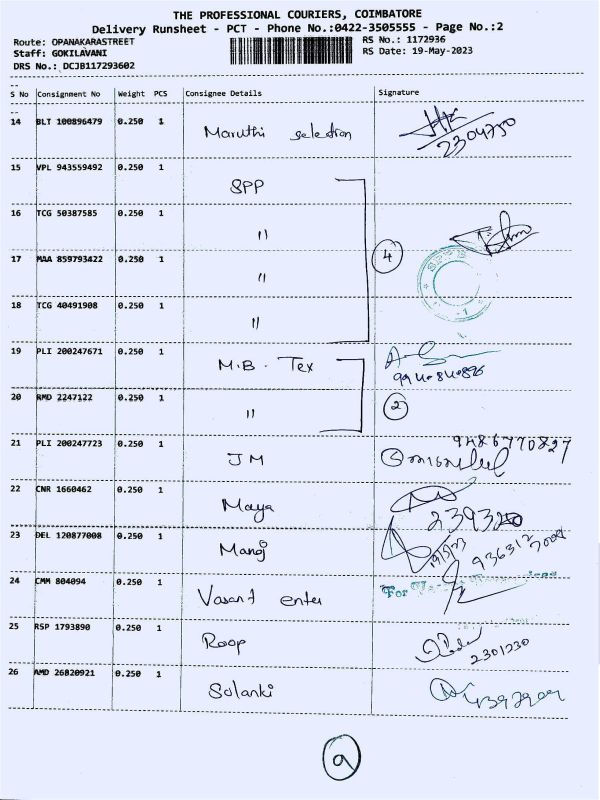 THE PROFESSIONAL COURIERS, COIMBATORE
Delivery Runsheet - PCT - Phone No.:0422-3505555 - Page No.:2
Route: OPANAKARASTREET RS No.: 1172936
Staff: GOKILAVANI RS Date: 19-May-2023
DRS No.: DCJB117293602
--
S No Consignment No Weight PCS Consignee Details Signature
--
14 BLT 100896479 0.250 1 Maruthi selection
2304750
15 VPL 943559492 0.250 1 SPP
16 TCG 50387585 0.250 1 "
17 MAA 859793422 0.250 1 " 4
18 TCG 40491908 0.250 1 "
19 PLI 200247671 0.250 1 M.B. Tex
20 RMD 2247122 0.250 1 " 2
21 PLI 200247723 0.250 1 JM 9486770827
22 CNR 1660462 0.250 1 Maya
23 DEL 120877008 0.250 1 Manoj
19/5/23
24 CMM 804094 0.250 1 Vasant enter For
25 RSP 1793890 0.250 1 Roop
2301230
26 AMD 26820921 0.250 1 Solanki
9